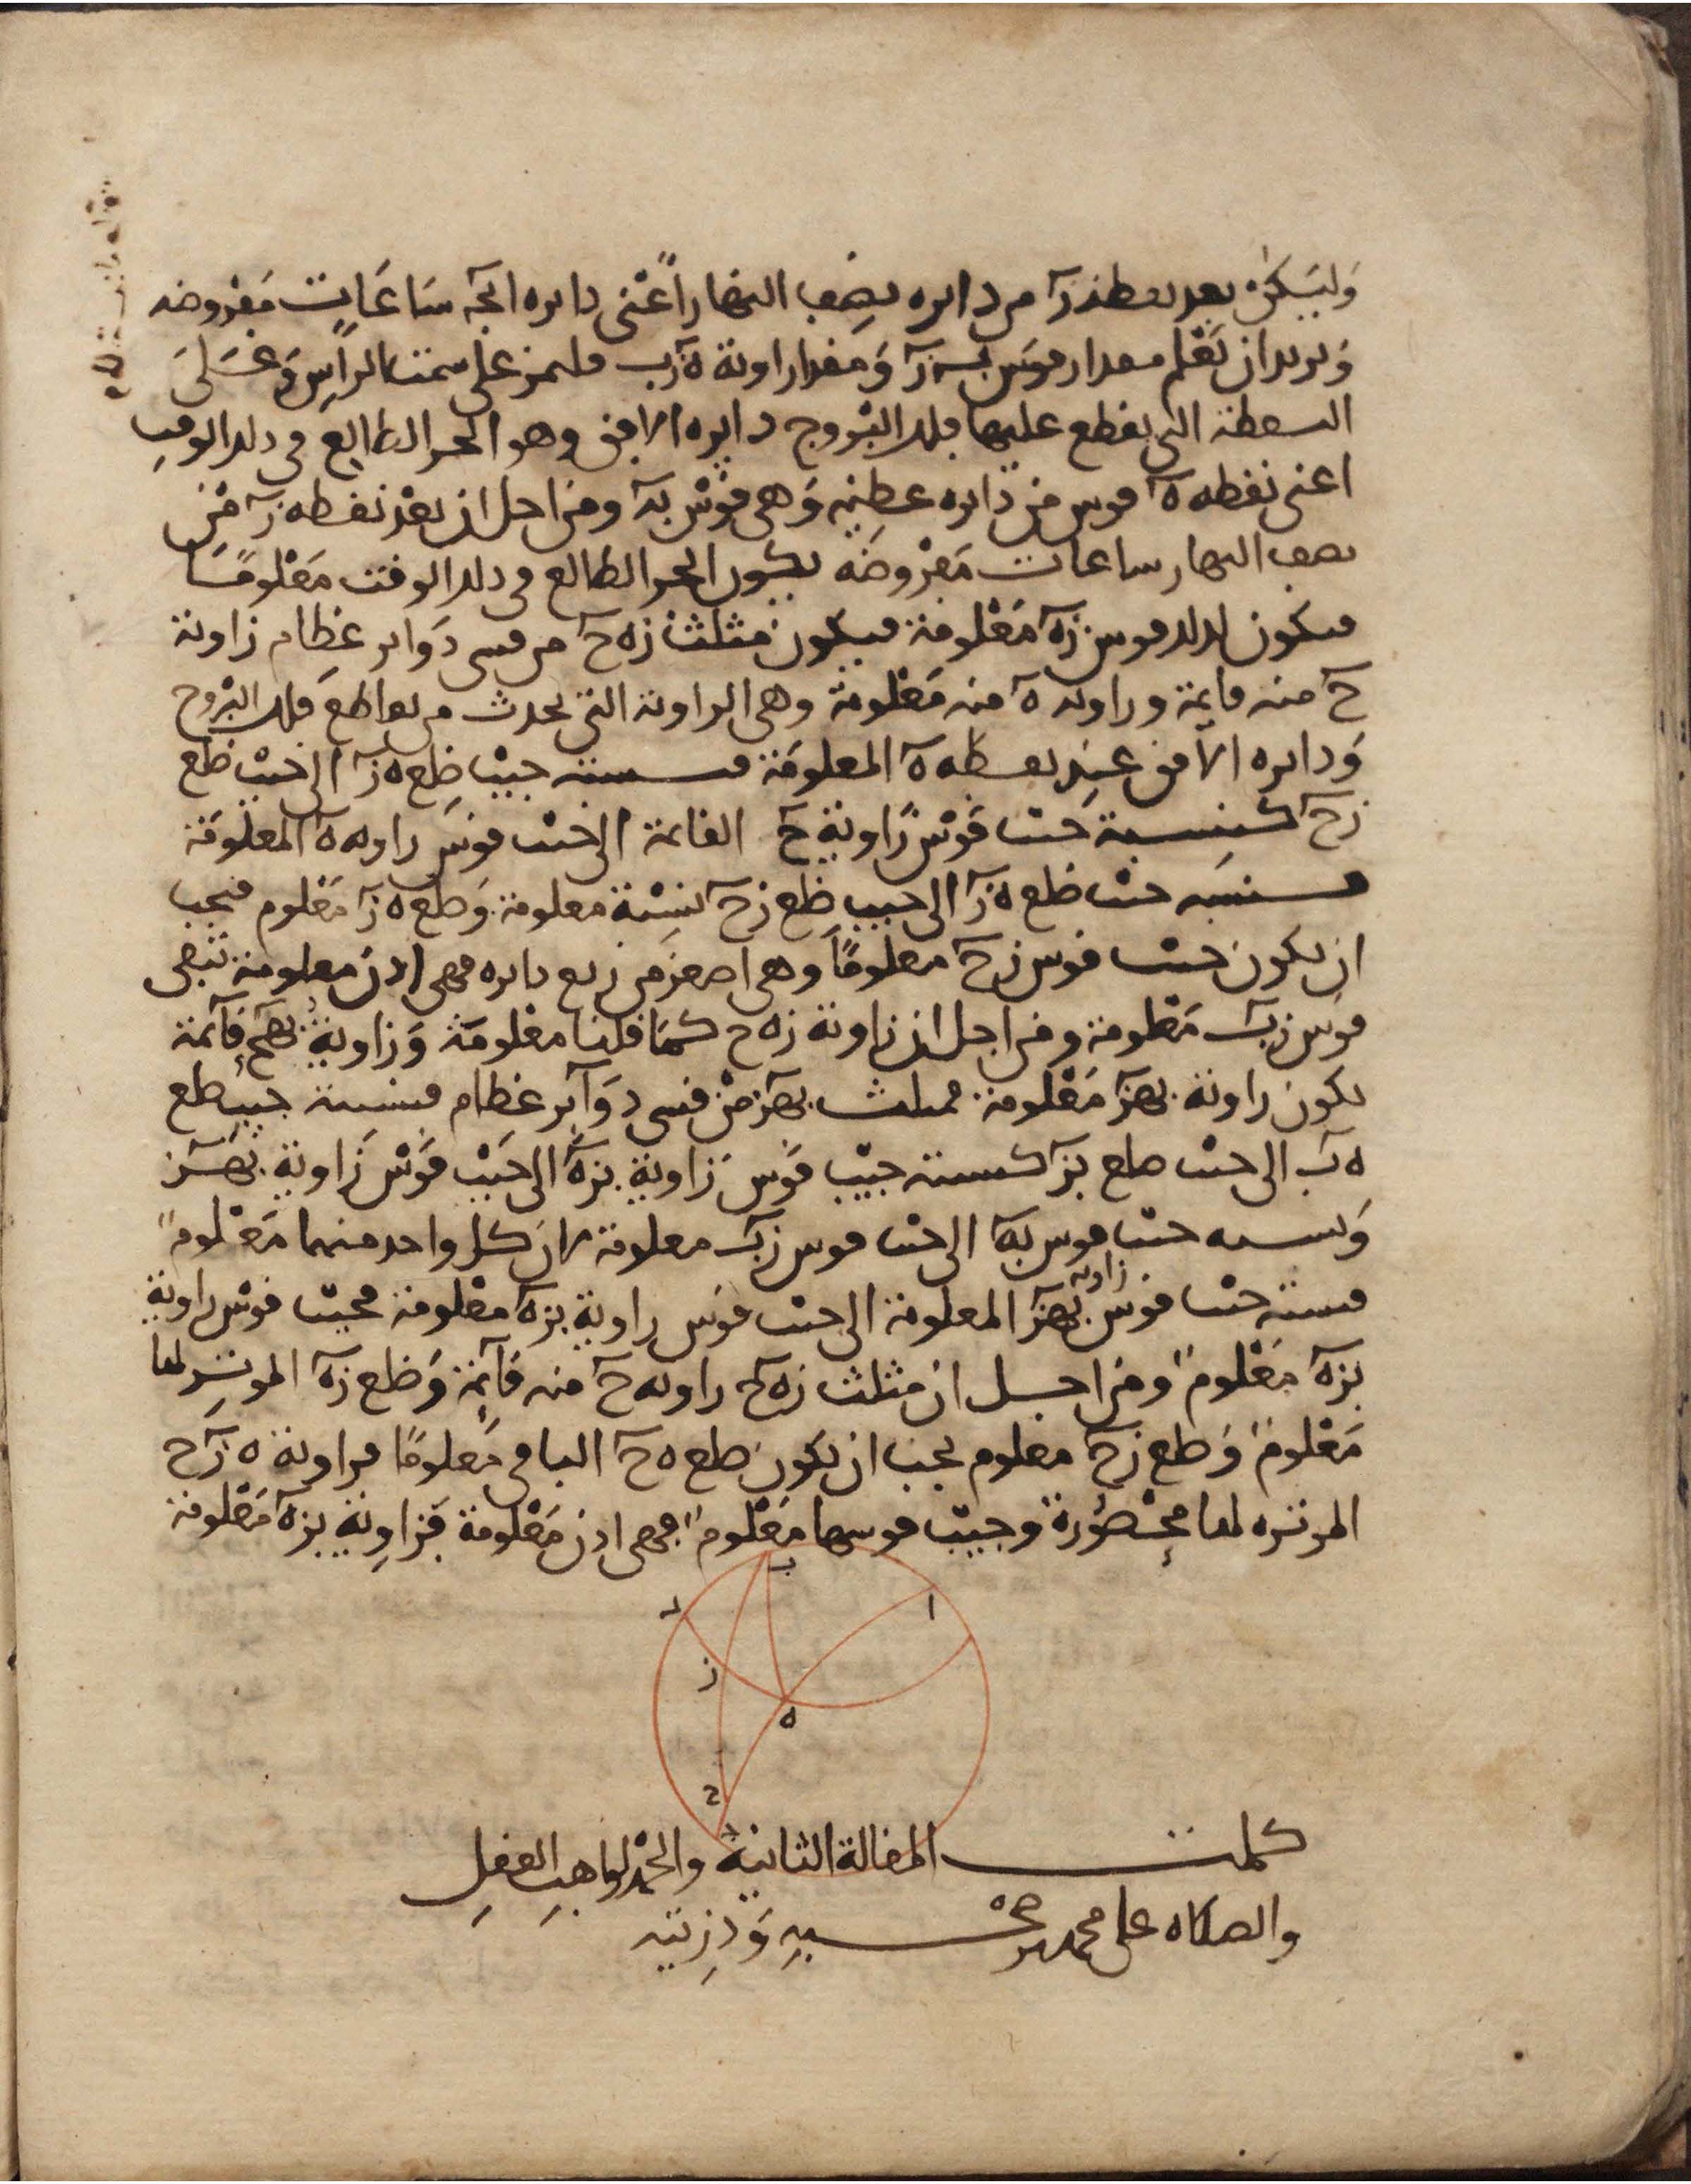 وليكن بعد نقطة زَ من دايره نصف النهار اعنى دايره ابجَه ساعات مفروضه
ونريد ان نعلم مقدار قوس بَ زَ ومقدار زاوية هَ زَب فلنمر على سمت الراس وعلى
النقطة التى يقطع عليها فلك البروج دايره الافق وهو الجزو الطالع فى ذلك الوقت
اعنى نقطه هَ قوس من دايره عظيمه وهى قوس بهَ ومن اجل ان بعد نقطه زَ من
نصف النهار ساعات مفروضه يكون الجزو الطالع فى ذلك الوقت معلومًا
فيكون لذلك قوس زهَ معلومة فيكون مثلث زه حَ من قسى دواير عظام زاوية
حَ منه قايمة وزاويه هَ منه معلومة وهى الزاوية التى تحدث من تقاطع فلك البروج
ودايره الافق عند نقطه هَ المعلومة فنسبة جيب ضلع ه زَ الى جيب ضلع
زحَ كنسبة جيب قوس زاوية حَ القايمة الى جيب قوس زاويه هَ المعلومة
فنسبه جيب ضلع ه زَ الى جيب ضلع زحَ نسبة معلومة وضلع ه زَ معلوم فيجب
ان يكون جيب قوس زحَ معلومًا وهى اصغر من ربع دايره فهى اذن معلومة تبقى
قوس زبَ معلومة ومن اجل ان زاوية زه ح كما قلنا معلومة وزاوية بهحَ قآئمة
تكون زاوية بهزَ معلومة فمثلث بهزَ من قسى دوآير عظام فنسبة جيب ضلع
ه بَ الى جيب ضلع بزَ كنسبة جيب قوس زاوية بزهَ الى جيب قوس زاوية بهَز
ونسبه جيب قوس بهَ الى جيب قوس زبَ معلومة لان كل واحد منهما معلومً
فنسبة جيب قوس زاوية بهزَ المعلومة الى جيب قوس زاوية بزهَ معلومة فجيب قوس زاوية
بزهَ معلومً ومن اجل ان مثلث زه حَ زاويه حَ منه قآئمة وضلع زهَ الموتر لها
معلومً وضلع زحَ معلوم يجب ان يكون ضلع ه حَ الباقى معلومًا فزاوية ه زَح
الموتره لها محصورة وجيب قوسها معلومً فهى اذن معلومة فزاوية بزهَ معلومة
ب
ا
د
ز
ه
ح
كملت المقالة الثانية والحمد لواهب العقل
والصلاه على محمد وذريته